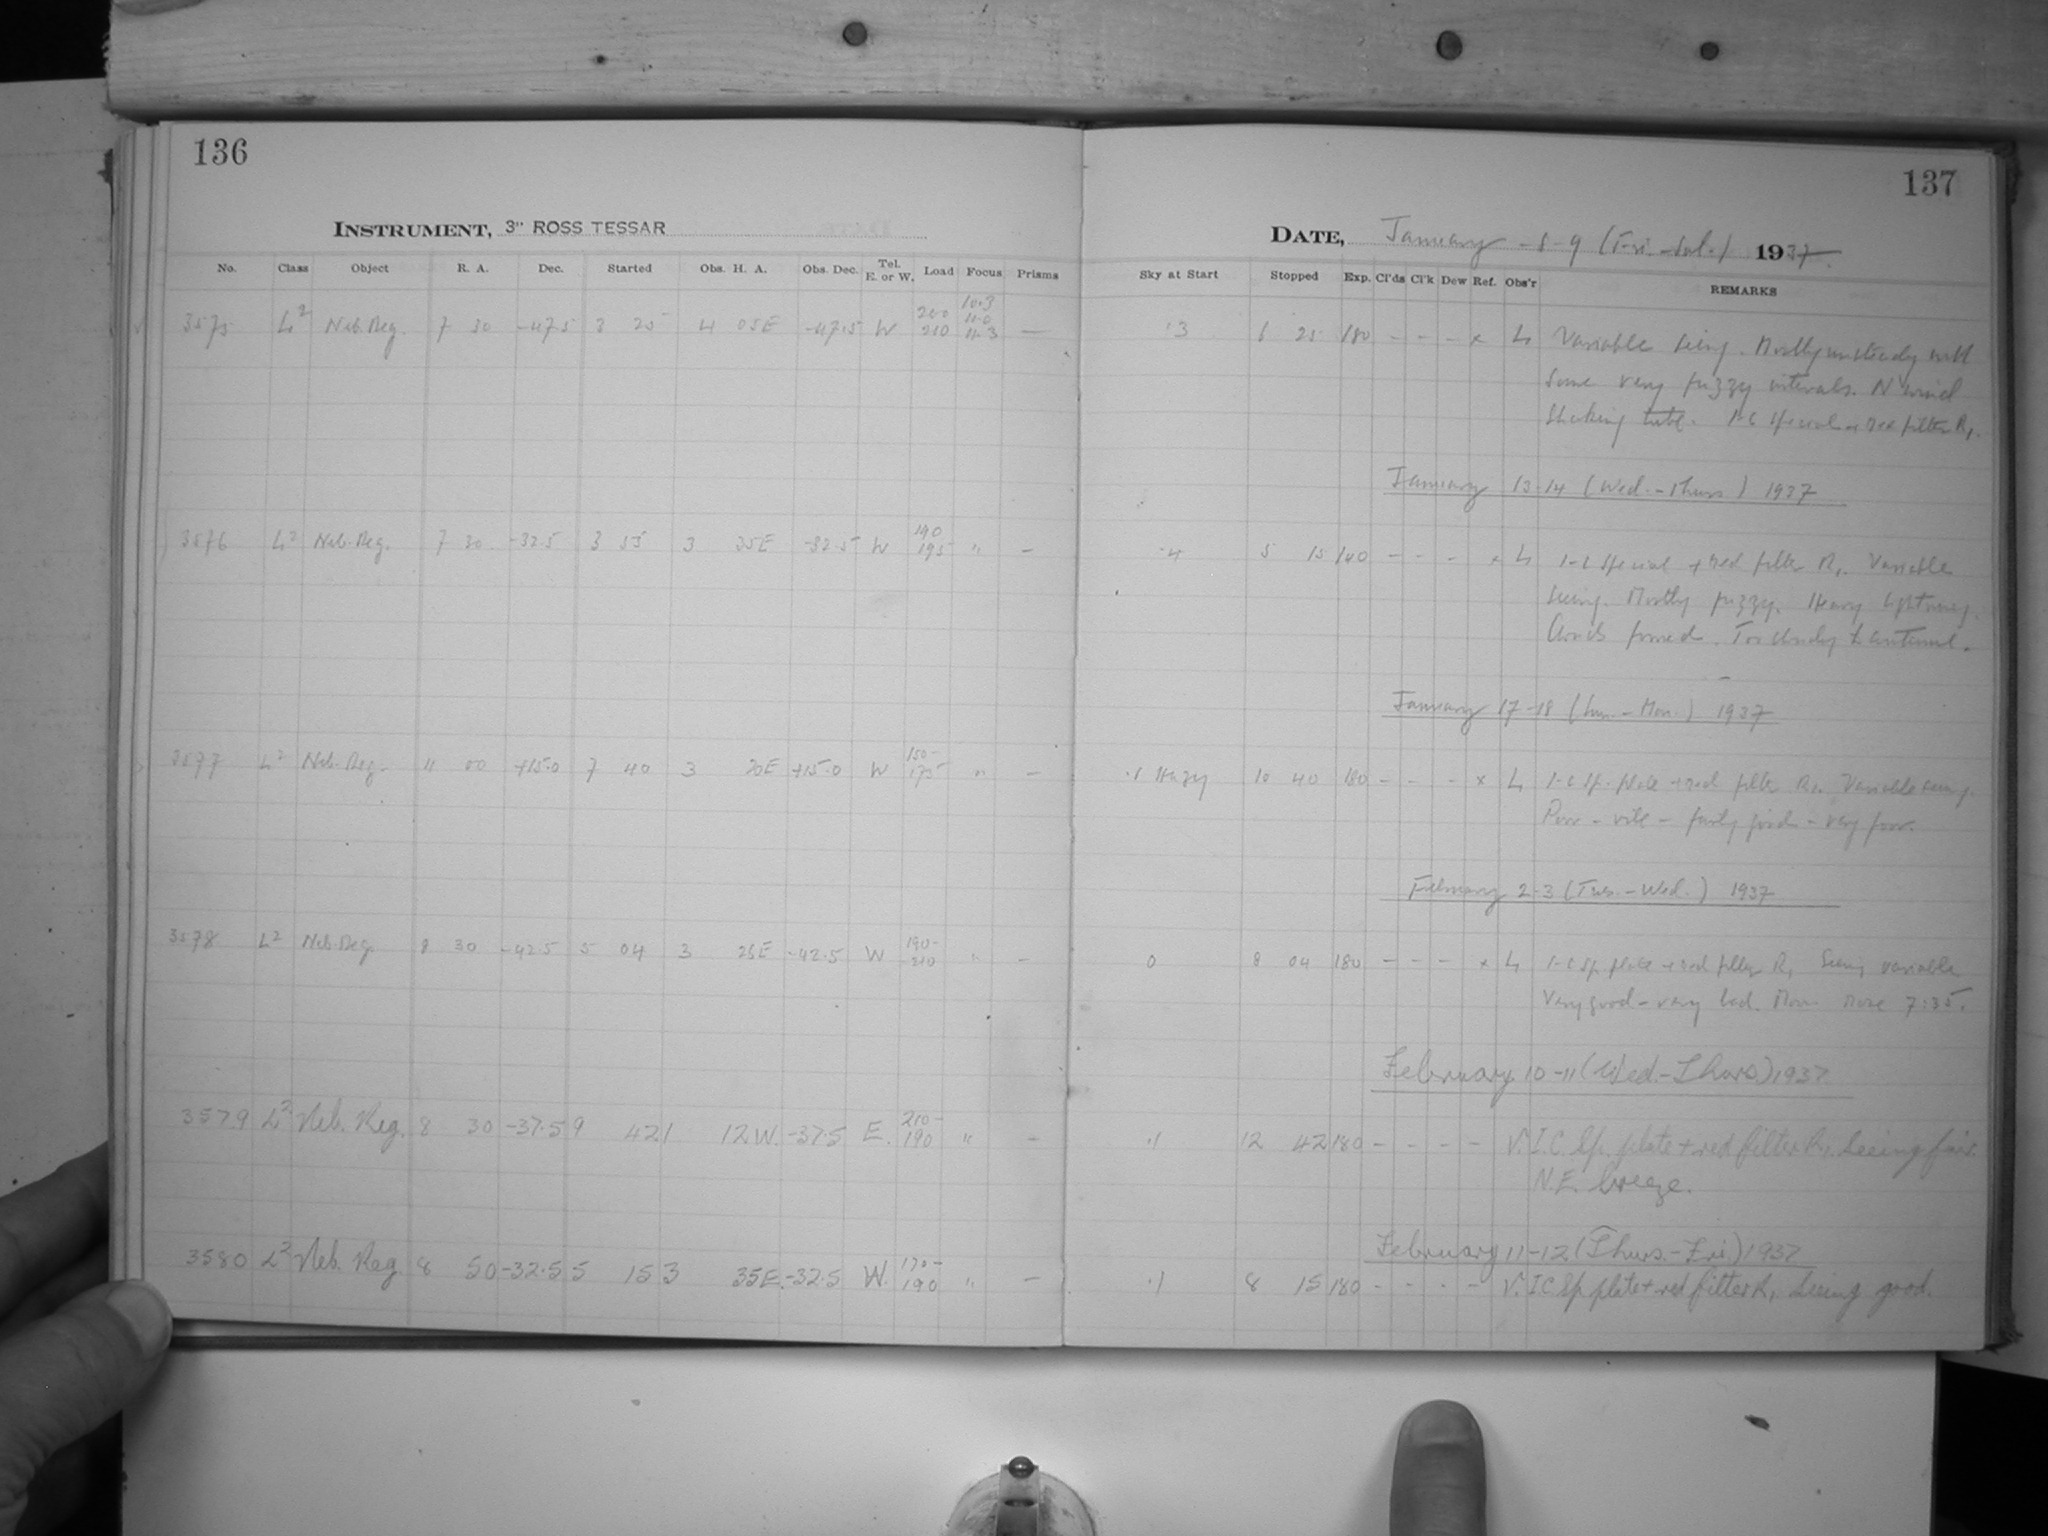 136
INSTRUMENT, 3" ROSS TESSAR
No. Class Object R. A. Dec. Started Obs. H. A. Obs. Dec. Tel. E. or W. Load Focus Prisms
3575 L² Neb. Reg. 7 30 -47.5 3 25 4 05E -47.5 W 200 210 10.3 11.0 11.3 —
3576 L² Neb. Reg. 7 30 -32.5 3 55 3 35E -32.5 W 190 195 " —
3577 L² Neb. Reg. 11 00 +15.0 7 40 3 20E +15.0 W 150- 175 " —
3578 L² Neb. Reg. 8 30 -42.5 5 04 3 25E -42.5 W 190- 210 " —
3579 L² Neb. Reg. 8 30 -37.5 9 42 1 12W. -37.5 E. 210- 190 " —
3580 L² Neb. Reg. 8 50 -32.5 5 15 3 35E. -32.5 W. 170- 190 " —
137
DATE, January 8-9 (Fri.-Sat.) 1937
Sky at Start Stopped Exp. Cl'ds Cl'k Dew Ref. Obs'r REMARKS
.3 6 25 180 - - - x L Variable seeing. Mostly unsteady with
some very fuzzy intervals. N wind
shaking tube. 1-C Special + red filter R₁.
January 13-14 (Wed.-Thurs) 1937
.4 5 15 140 - - - x L 1-C Special + red filter R₁. Variable
seeing. Mostly fuzzy. Heavy lightning.
Clouds formed. Too cloudy to continue.
January 17-18 (Sun.-Mon.) 1937
.1 Hazy 10 40 180 - - - x L 1-C Sp. plate + red filter R₁. Variable seeing.
Poor - vile - fairly good - very poor.
February 2-3 (Tues.-Wed.) 1937
0 8 04 180 - - - x L 1-C Sp. plate + red filter R₁ Seeing variable
Very good - very bad. Moon rose 7:35.
February 10-11 (Wed.-Thurs) 1937
.1 12 42 180 - - - - V. I.C Sp. plate + red filter R₁. Seeing fair.
N.E. breeze.
February 11-12 (Thurs.-Fri.) 1937
.1 8 15 180 - - - - V. IC Sp plate + red filter R₁ Seeing good.